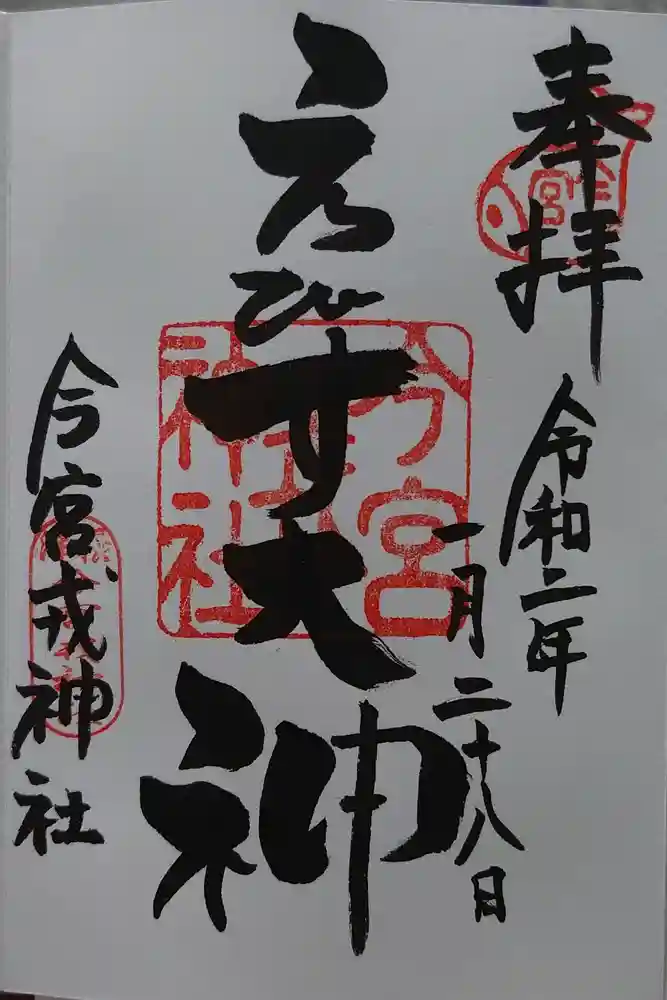 奉拝
令和二年
一月二十八日
えびす大神
今宮戎神社
今宮
神社
今宮